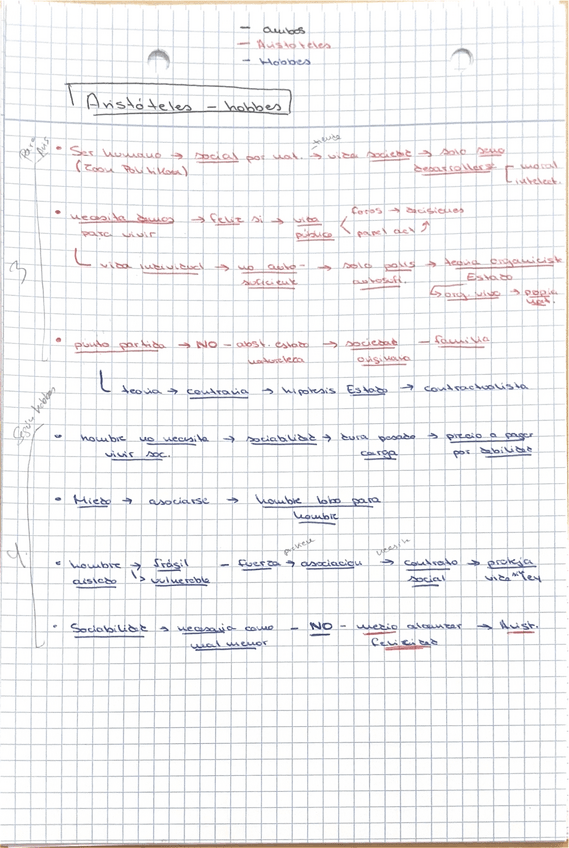 - ambos
- Aristóteles
- Hobbes
Aristóteles - hobbes
• Ser humano → social por nat. → vida sociedad → solo
(Zoon Politikon) desarrollar moral
intelect.
• necesita demás → feliz si → vida foros → decisiones
para vivir pública papel act
vida individual → no auto- → solo polis → teoría organicist
suficiente autosufi. Estado
org. vivo →
3
• punto partida → NO - abst. estado → sociedad - familia
naturaleza originaria
teoría → contraria → hipótesis Estado → contractualista
Según hobbes
• hombre no necesita → sociabilidad → dura pesada → precio a pagar
vivir soc. carga por debilidad
• Miedo → asociarse → hombre lobo para
hombre
4.
• hombre → frágil - fuerza → asociacion → contrato → proteja
aislado ↳ vulnerable social vida ley
• Sociabilidad → necesaria como - NO - medio alcanzar → Arist.
mal menor felicidad